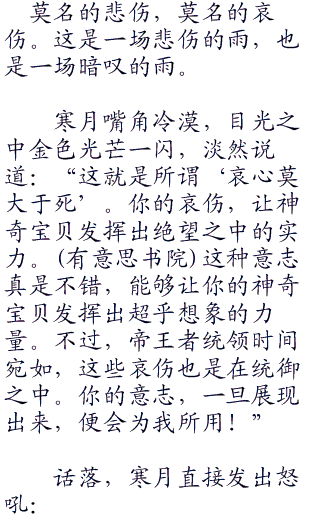 莫名的悲伤，莫名的哀
伤。这是一场悲伤的雨，也
是一场暗叹的雨。
寒月嘴角冷漠，目光之
中金色光芒一闪，淡然说
道：“这就是所谓‘哀心莫
大于死’。你的哀伤，让神
奇宝贝发挥出绝望之中的实
力。(有意思书院)这种意志
真是不错，能够让你的神奇
宝贝发挥出超乎想象的力
量。不过，帝王者统领时间
宛如，这些哀伤也是在统御
之中。你的意志，一旦展现
出来，便会为我所用！”
话落，寒月直接发出怒
吼：